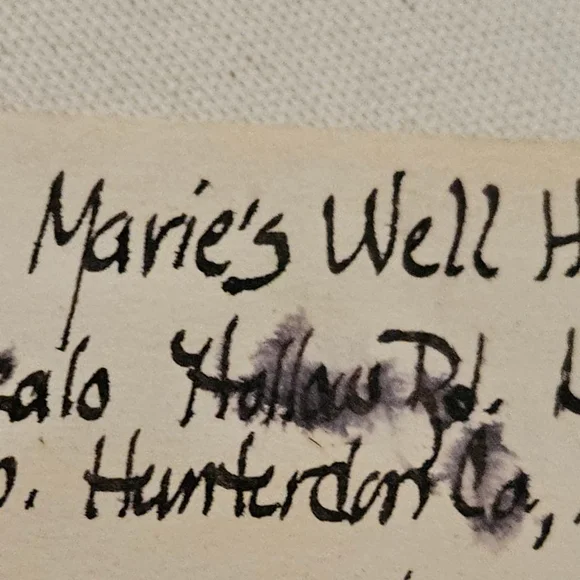 Marie's Well H
ealo Hollow Rd. L
o. Hunterdon Co,